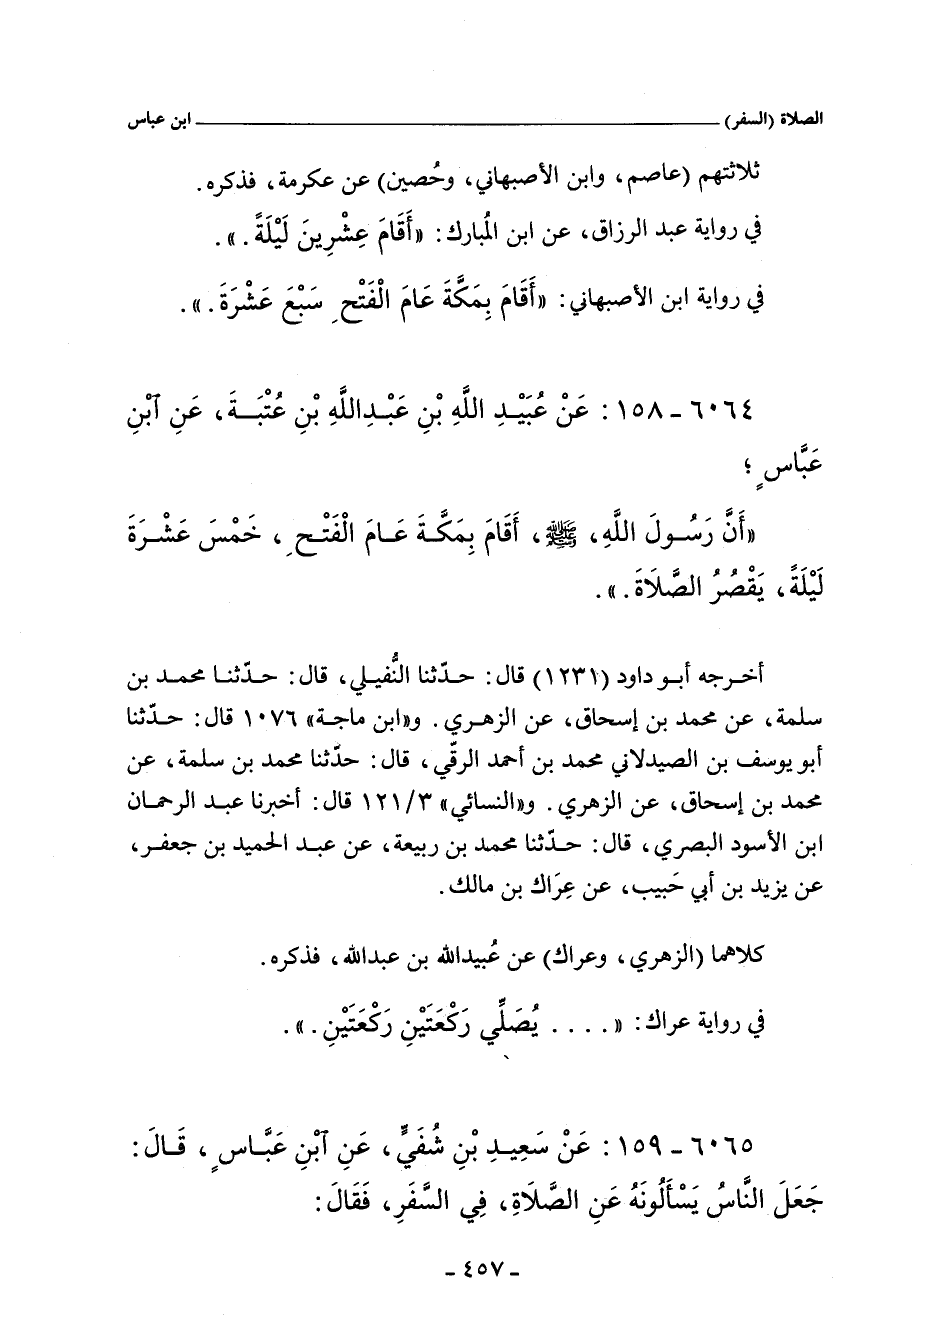 الصلاة (السفر) ـــــــــــــــــــــــــــــــــــــــــ ابن عباس
ثلاثتهم (عاصم، وابن الأصبهاني، وحُصين) عن عكرمة، فذكره.
في رواية عبد الرزاق، عن ابن المُبارك: «أَقَامَ عِشْرِينَ لَيْلَةً.».
في رواية ابن الأصبهاني: «أَقَامَ بِمَكَّةَ عَامَ الْفَتْحِ سَبْعَ عَشْرَةَ.».
٦٠٦٤ - ١٥٨: عَنْ عُبَيْدِ اللَّهِ بْنِ عَبْدِاللَّهِ بْنِ عُتْبَةَ، عَنِ ٱبْنِ
عَبَّاسٍ؛
«أَنَّ رَسُولَ اللَّهِ، ﷺ، أَقَامَ بِمَكَّةَ عَامَ الْفَتْحِ، خَمْسَ عَشْرَةَ
لَيْلَةً، يَقْصُرُ الصَّلَاةَ.».
أخرجه أبو داود (١٢٣١) قال: حدّثنا النُّفيلي، قال: حدّثنا محمد بن
سلمة، عن محمد بن إسحاق، عن الزهري. و«ابن ماجة» ١٠٧٦ قال: حدّثنا
أبو يوسف بن الصيدلاني محمد بن أحمد الرقّي، قال: حدّثنا محمد بن سلمة، عن
محمد بن إسحاق، عن الزهري. و«النسائي» ١٢١/٣ قال: أخبرنا عبد الرحمان
ابن الأسود البصري، قال: حدّثنا محمد بن ربيعة، عن عبد الحميد بن جعفر،
عن يزيد بن أبي حَبيب، عن عِرَاك بن مالك.
كلاهما (الزهري، وعراك) عن عُبيدالله بن عبدالله، فذكره.
في رواية عراك: «.... يُصَلِّي رَكْعَتَيْنِ رَكْعَتَيْنِ.».
٦٠٦٥ - ١٥٩: عَنْ سَعِيدِ بْنِ شُفَيٍّ، عَنِ ٱبْنِ عَبَّاسٍ، قَالَ:
جَعَلَ النَّاسُ يَسْأَلُونَهُ عَنِ الصَّلَاةِ، فِي السَّفَرِ، فَقَالَ:
- ٤٥٧ -